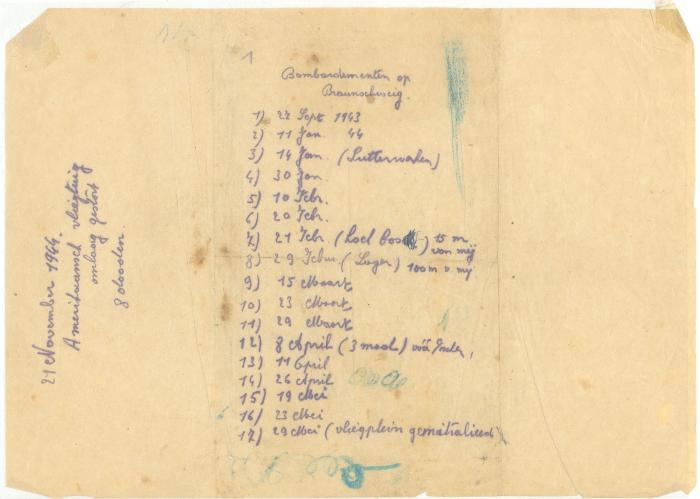 1
Bombardementen op
Braunschweig.
1) 27 Sept 1943
2) 11 Jan. 44
3) 14 Jan. (Lutterwerken)
4) 30 Jan.
5) 10 Febr.
6) 20 Febr.
7) 21 Febr. ( ) 15 m
van mij
8) 29 Febr. (Lager) 100 m v mij
9) 15 Maart
10) 23 Maart
11) 29 Maart
12) 8 April (3 maal) vóór
13) 11 April
14) 26 April
15) 19 Mei
16) 23 Mei
17) 29 Mei (vliegplein gemitraileerd)
21 November 1944.
Amerikaansch vliegtuig
omlaag gestort
8 dooden.